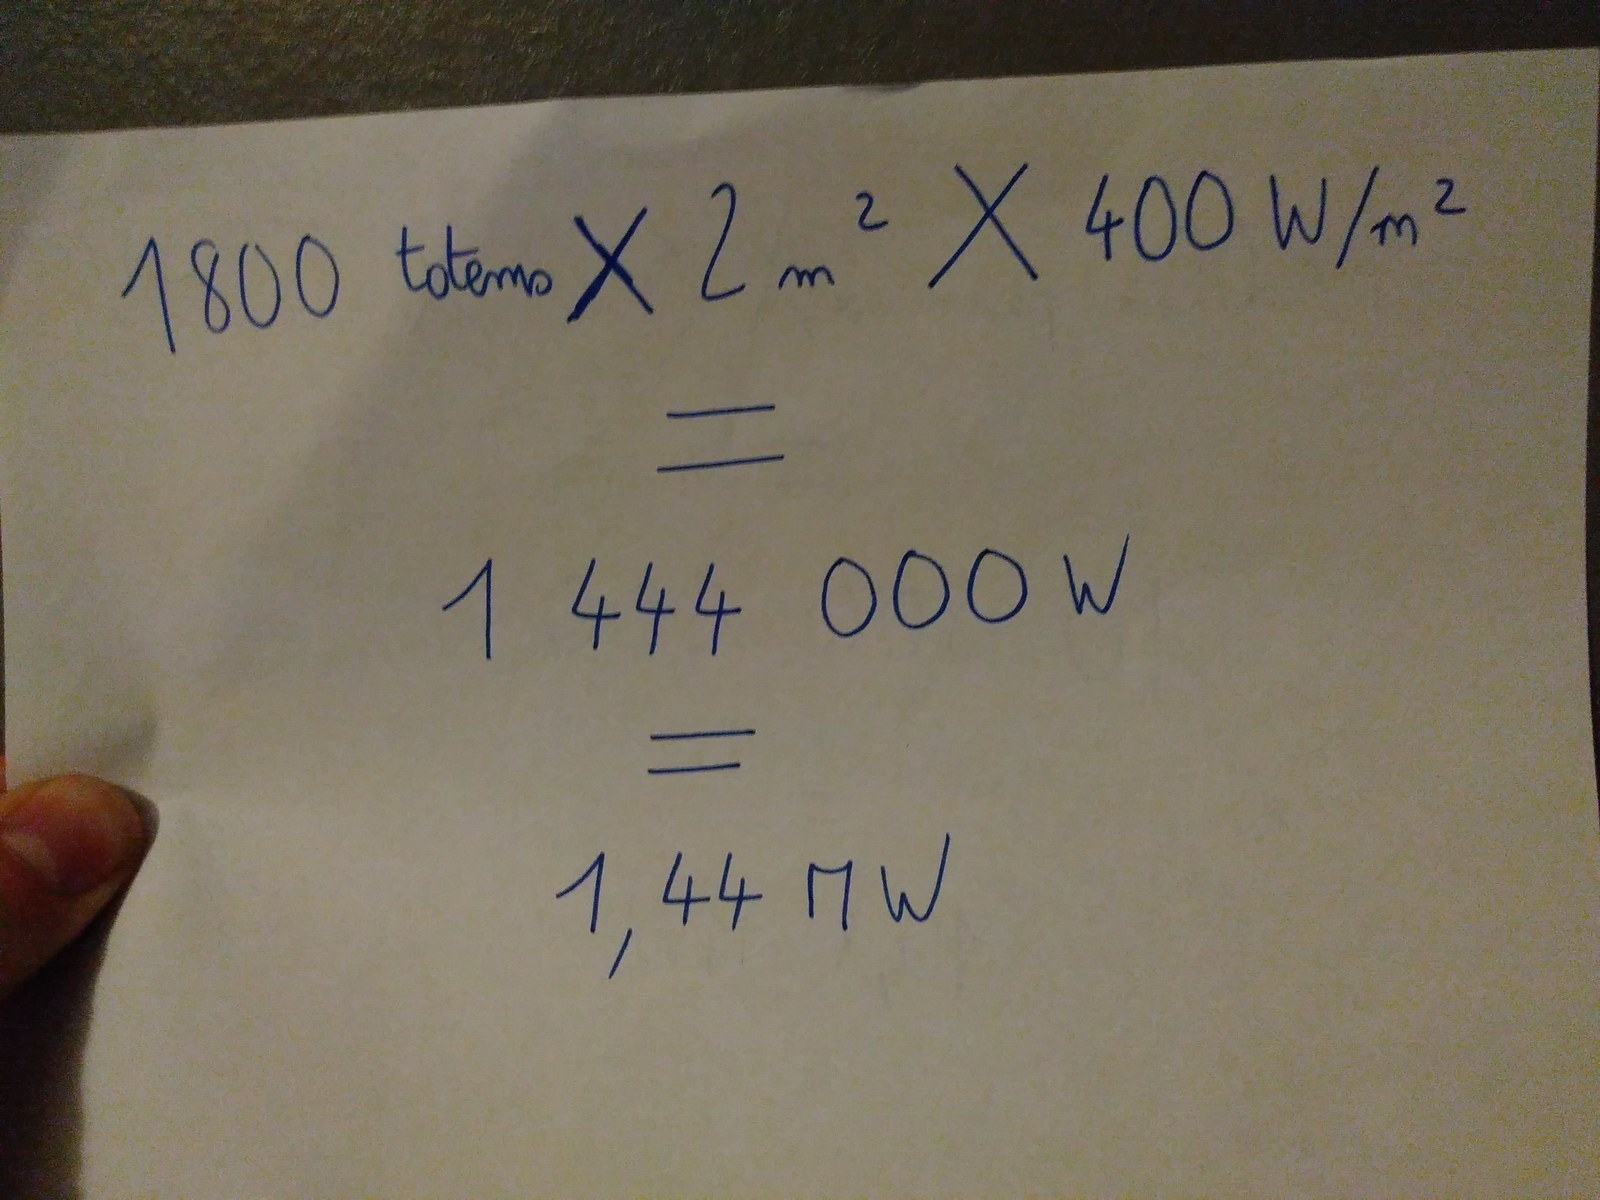 1800 totems X 2 m² X 400 W/m²
=
1 444 000 W
=
1,44 MW